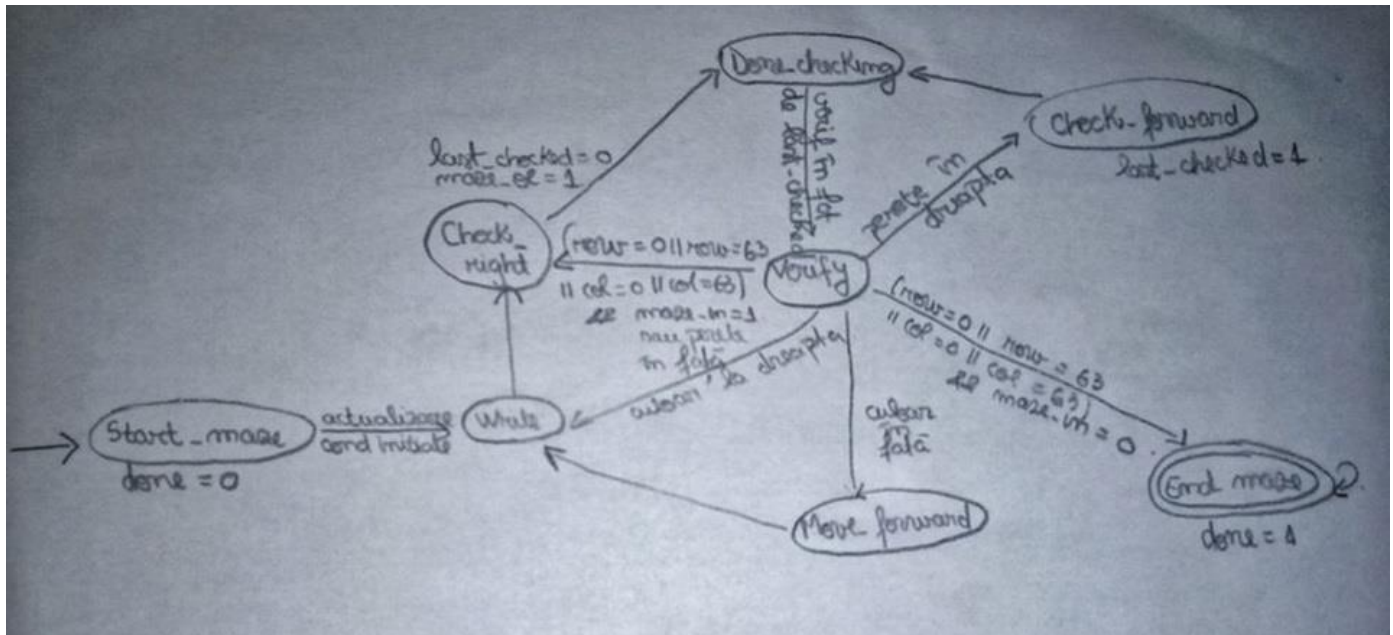 Done_checking
verif în fct
de last_checked
Check_forward
last_checked=1
last_checked=0
maze_oe=1
perete în
dreapta
Check_
right
(row=0||row=63
|| col=0 || col=63)
&& maze_in=1
sau perete
în față
Verify
(row=0 || row=63
|| col=0 || col=63)
&& maze_in=0
culoar la dreapta
Start_maze
done=0
actualizare
cond initiale
Write
culoar
în
față
Move forward
End maze
done=1